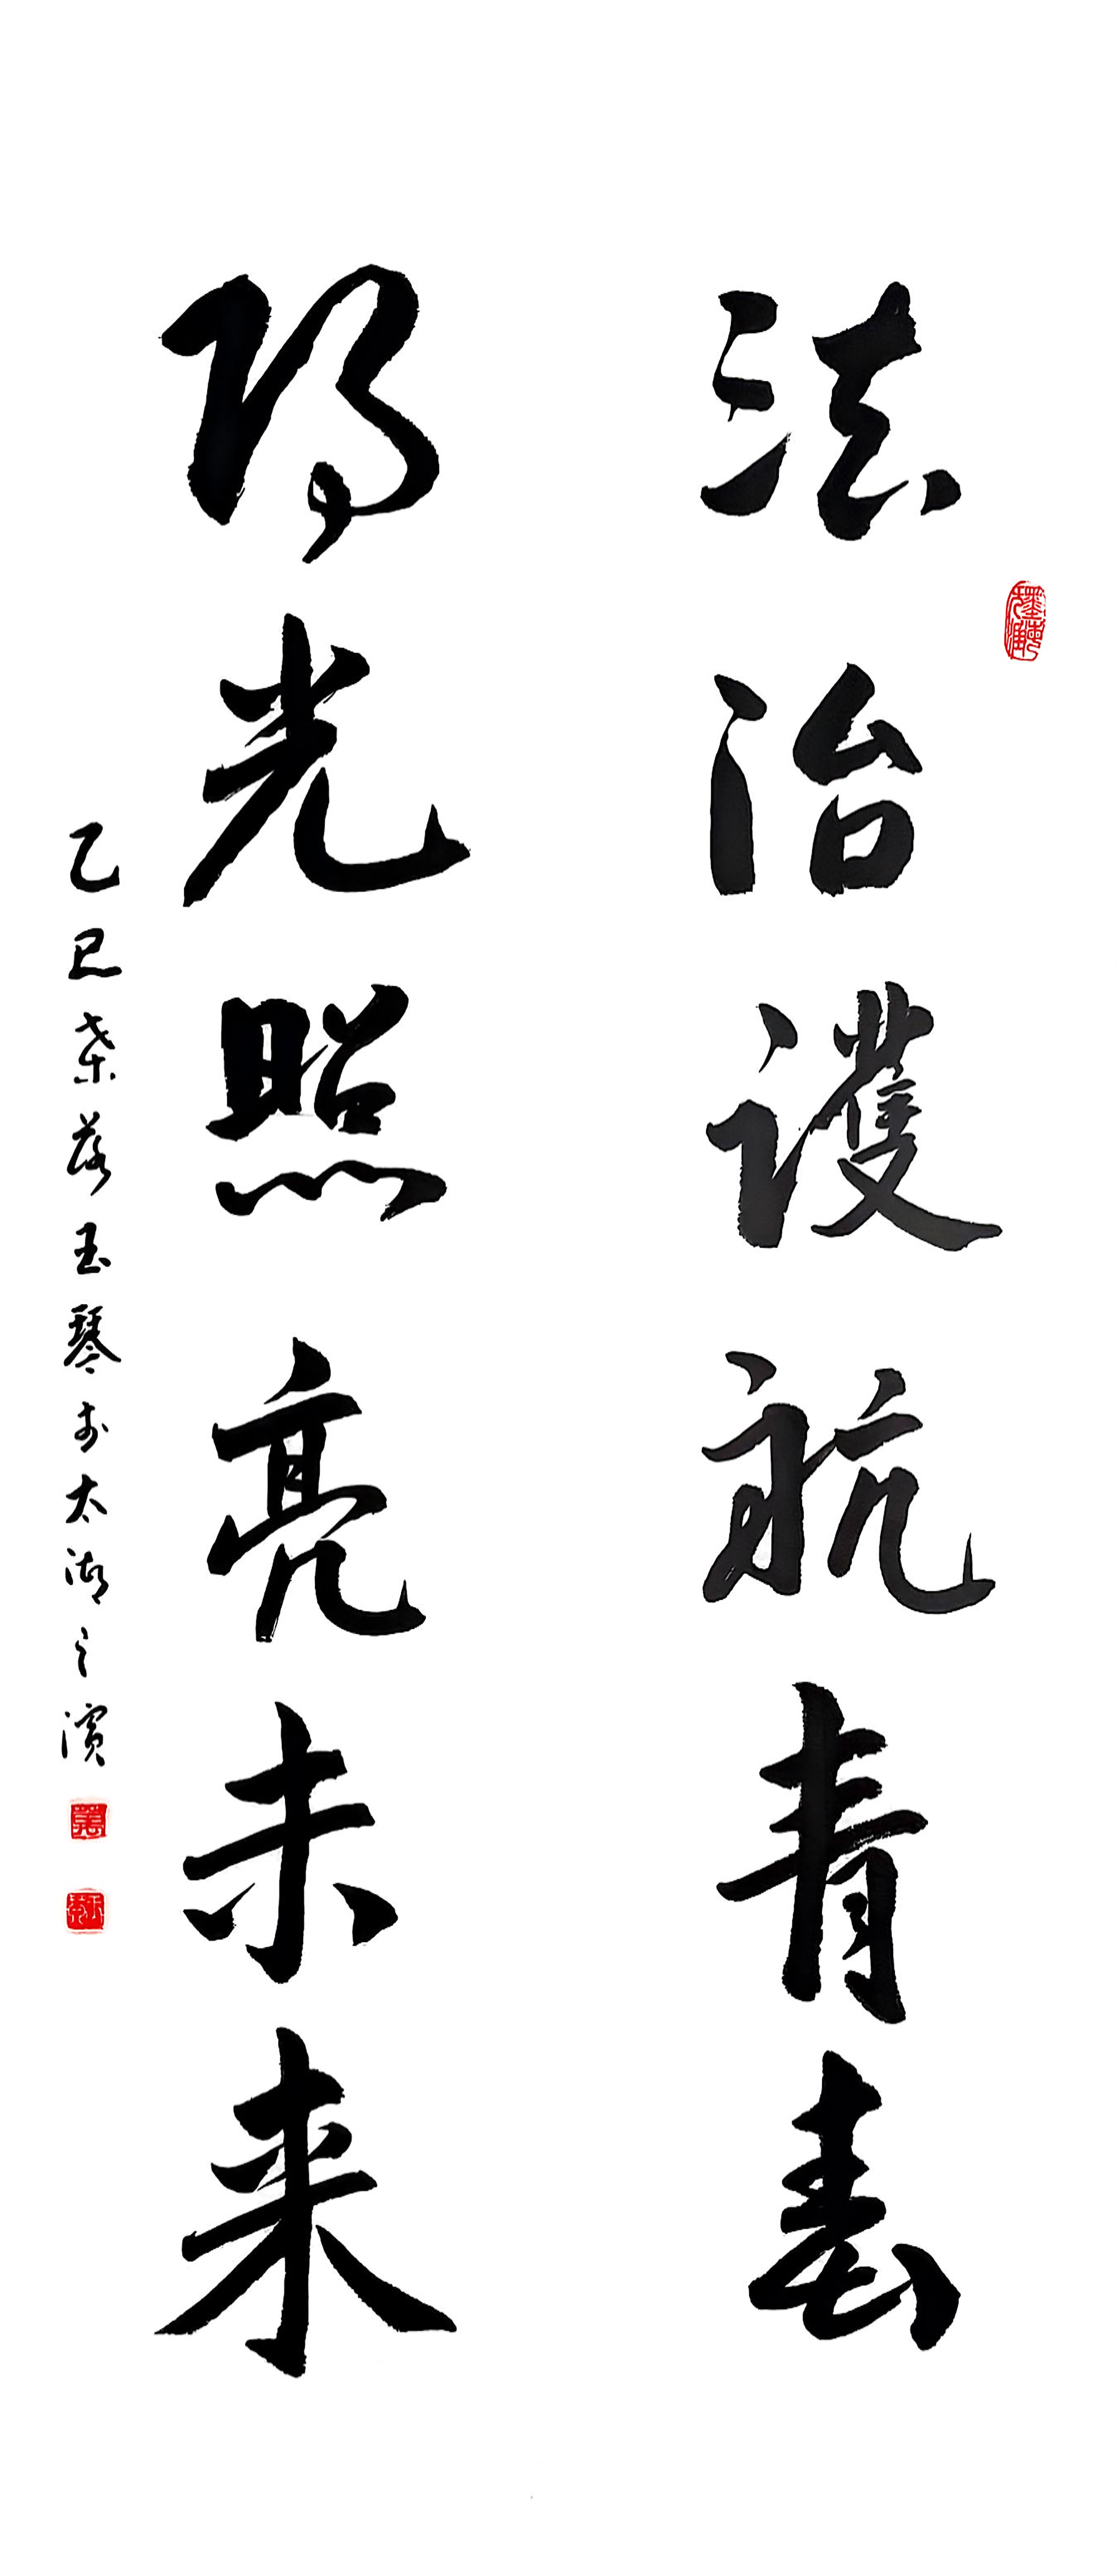 法治護航青春
陽光照亮未来
乙巳葉落玉琴於太湖之濱